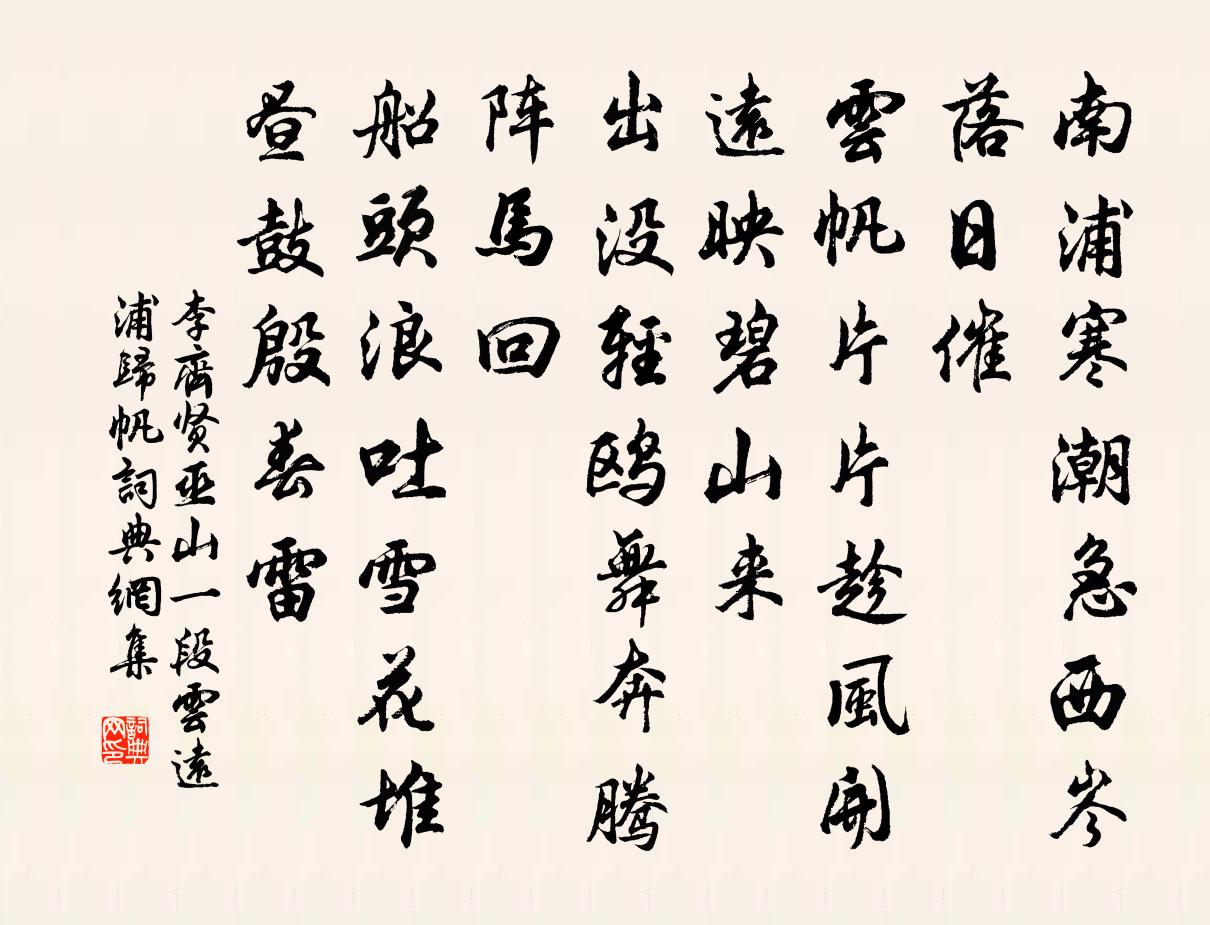 南浦寒潮急西岑
落日催
雲帆片片趁風開
遠映碧山来
出没輕鸥舞奔腾
阵馬回
船頭浪吐雪花堆
昼鼓殷春雷
李齊贤巫山一段雲遠
浦歸帆詞典網集
詞典网印